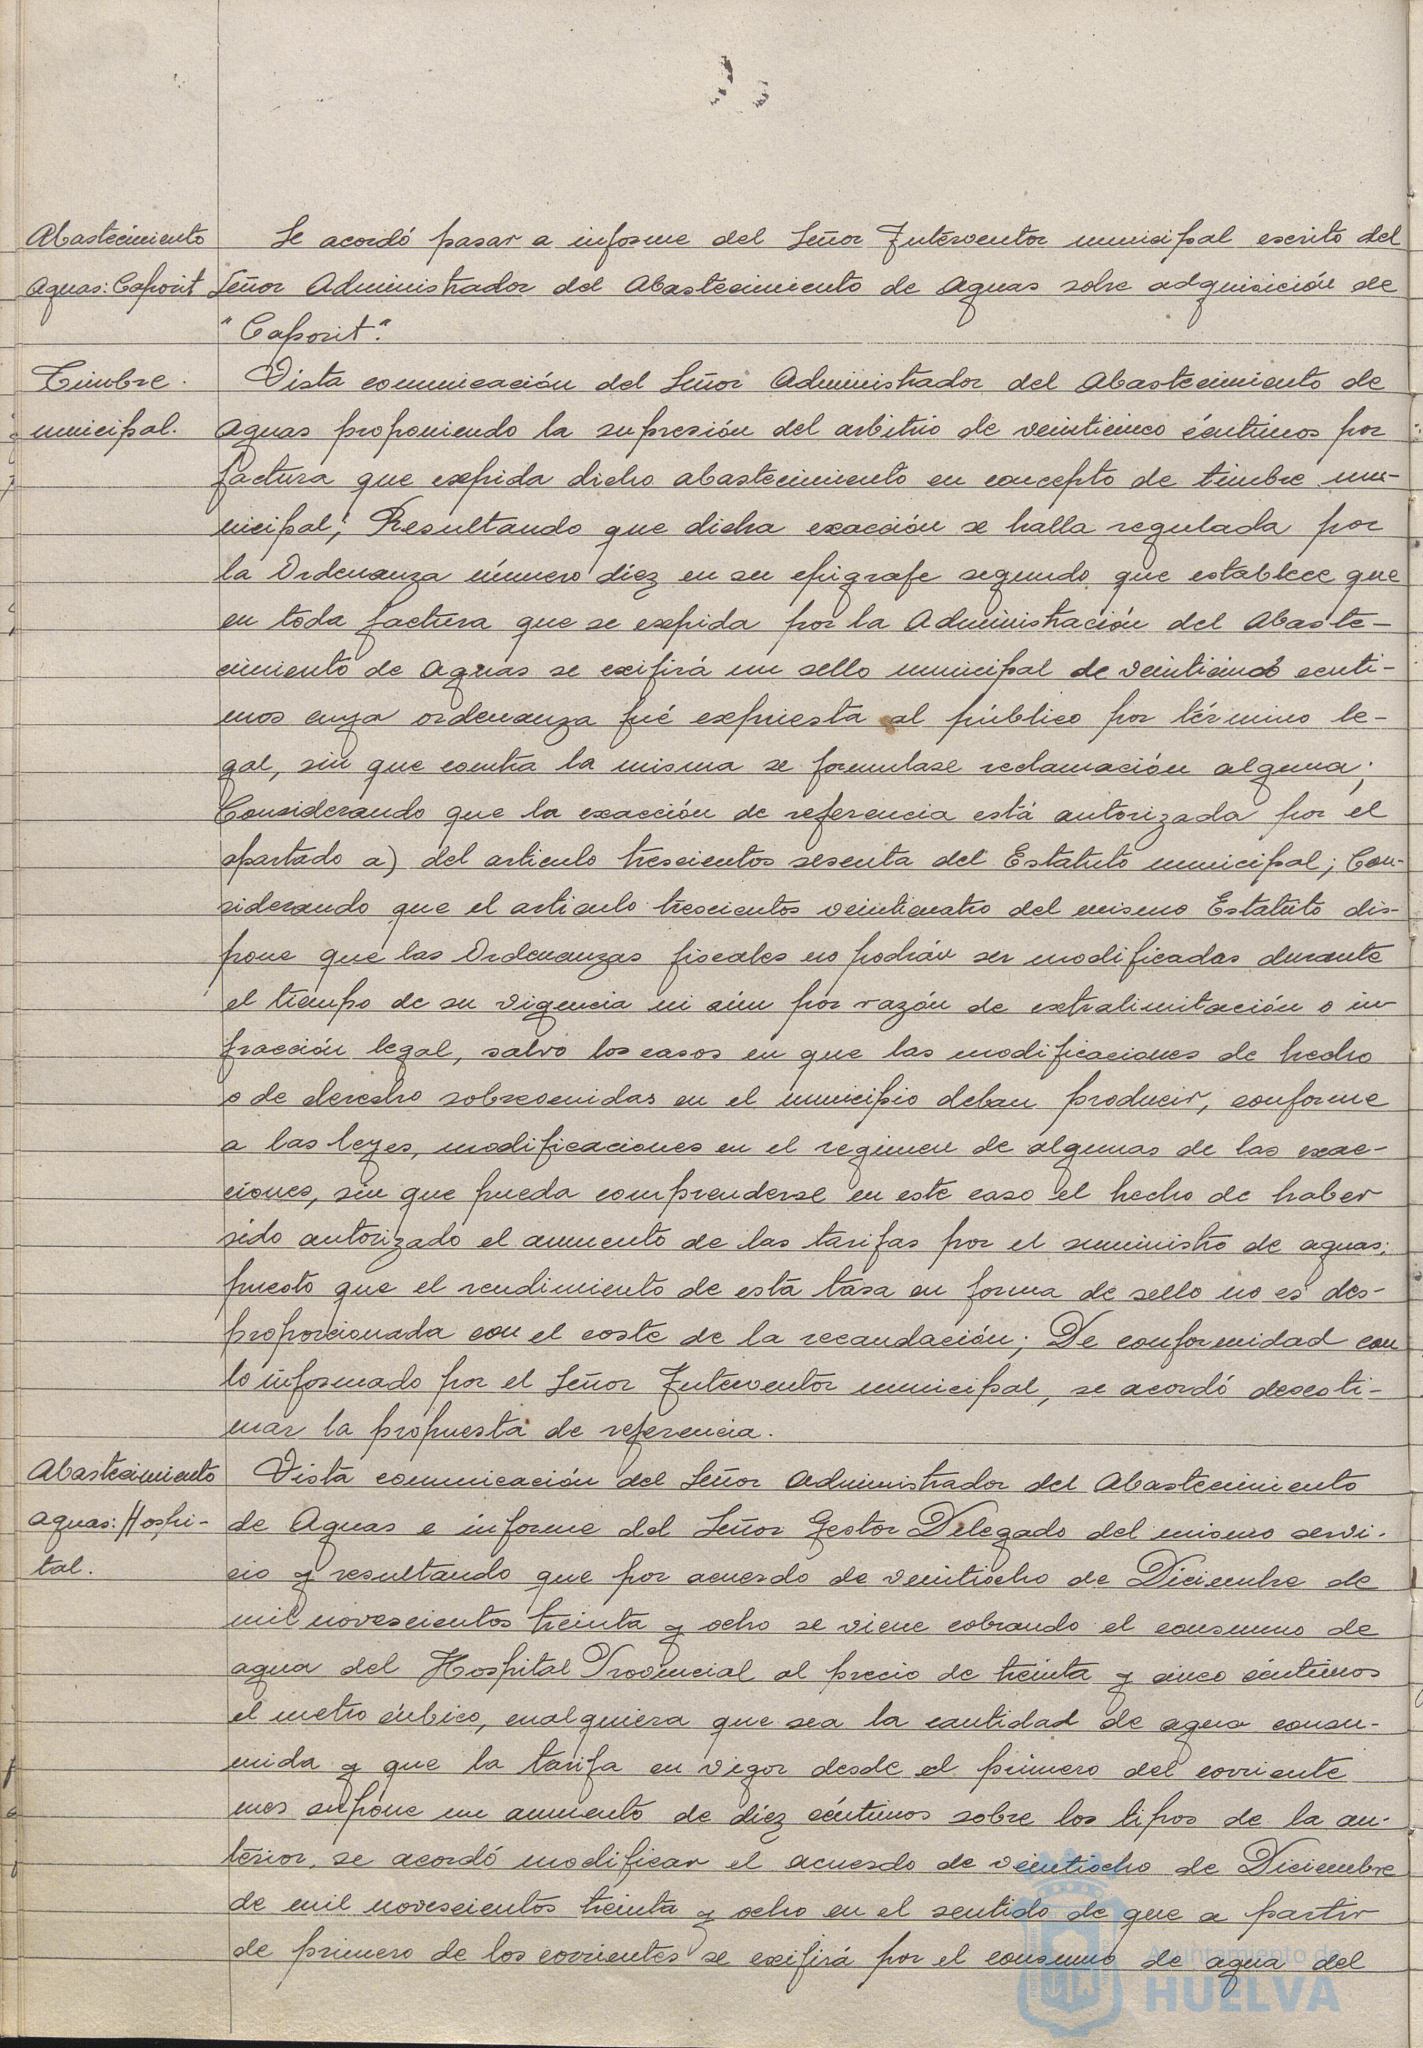 Abastecimiento
Aguas: Caporit
Se acordó pasar a informe del Señor Interventor municipal escrito del
Señor Administrador del Abastecimiento de Aguas sobre adquisición de
"Caporit".
Timbre
municipal.
Vista comunicación del Señor Administrador del Abastecimiento de
Aguas proponiendo la supresión del arbitrio de veinticinco céntimos por
factura que expida dicho abastecimiento en concepto de timbre mu-
nicipal; Resultando que dicha exacción se halla regulada por
la Ordenanza número diez en su epigrafe segundo que establece que
en toda factura que se expida por la Administración del Abaste-
cimiento de Aguas se exijirá un sello municipal de veinticinco centi-
mos cuya ordenanza fué expuesta al público por término le-
gal, sin que contra la misma se formulase reclamación alguna;
Considerando que la exacción de referencia está autorizada por el
apartado a) del articulo trescientos sesenta del Estatuto municipal; Con-
siderando que el articulo trescientos veinticuatro del mismo Estatuto dis-
pone que las Ordenanzas fiscales no podrán ser modificadas durante
el tiempo de su vigencia ni aún por razón de extralimitación o in-
fracción legal, salvo los casos en que las modificaciones de hecho
o de derecho sobrevenidas en el municipio deban producir, conforme
a las leyes, modificaciones en el regimen de algunas de las exac-
ciones, sin que pueda comprenderse en este caso el hecho de haber
sido autorizado el aumento de las tarifas por el suministro de aguas;
puesto que el rendimiento de esta tasa en forma de sello no es des-
proporcionada con el coste de la recaudación; De conformidad con
lo informado por el Señor Interventor municipal, se acordó desesti-
mar la propuesta de referencia.
Abastecimiento
aguas: Hospi-
tal.
Vista comunicación del Señor Administrador del Abastecimiento
de Aguas e informe del Señor Gestor Delegado del mismo servi-
cio y resultando que por acuerdo de veintiocho de Diciembre de
mil novescientos treinta y ocho se viene cobrando el consumo de
agua del Hospital Provincial al precio de treinta y cinco céntimos
el metro cúbico, cualquiera que sea la cantidad de agua consu-
mida y que la tarifa en vigor desde el primero del corriente
mes supone un aumento de diez céntimos sobre los tipos de la an-
terior, se acordó modificar el acuerdo de veintiocho de Diciembre
de mil novescientos treinta y ocho en el sentido de que a partir
de primero de los corrientes se exijirá por el consumo de agua del
Ayuntamiento de
HUELVA